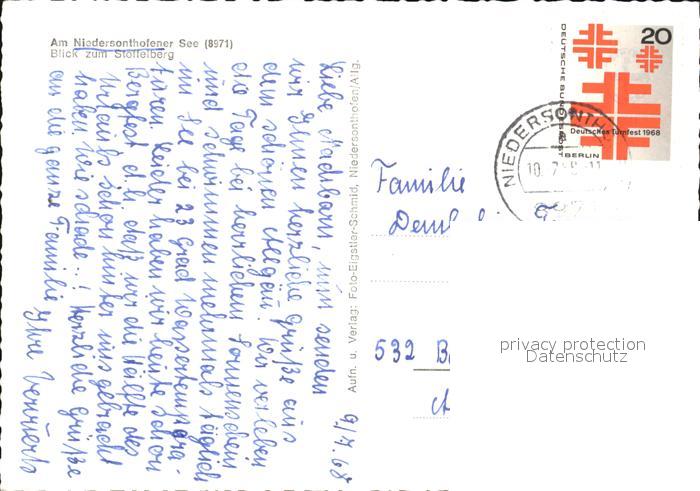 Am Niedersonthofener See (8971)
Blick zum Stoffelberg
9/7.68
Liebe Nachbarn, wir senden
wir Ihnen herzliche Grüße aus
dem schönen Allgäu. Wir verleben
die Tage bei herrlichem Sonnenschein
und schwimmen mehrmals täglich
im See bei 23 Grad Wassertempera-
turen. Leider haben wir heute schon
Bergfest d.h. daß wir die Hälfte des
Urlaubs schon hinter uns gebracht
haben, wie schade..! Herzliche Grüße
an die ganze Familie Ihre
Aufn. u. Verlag: Foto-Eigstler-Schmid, Niedersonthofen/Allg.
DEUTSCHE BUNDESPOST
BERLIN
20
Deutsches Turnfest 1968
NIEDERSONTH
Familie
532 B
privacy protection
Datenschutz